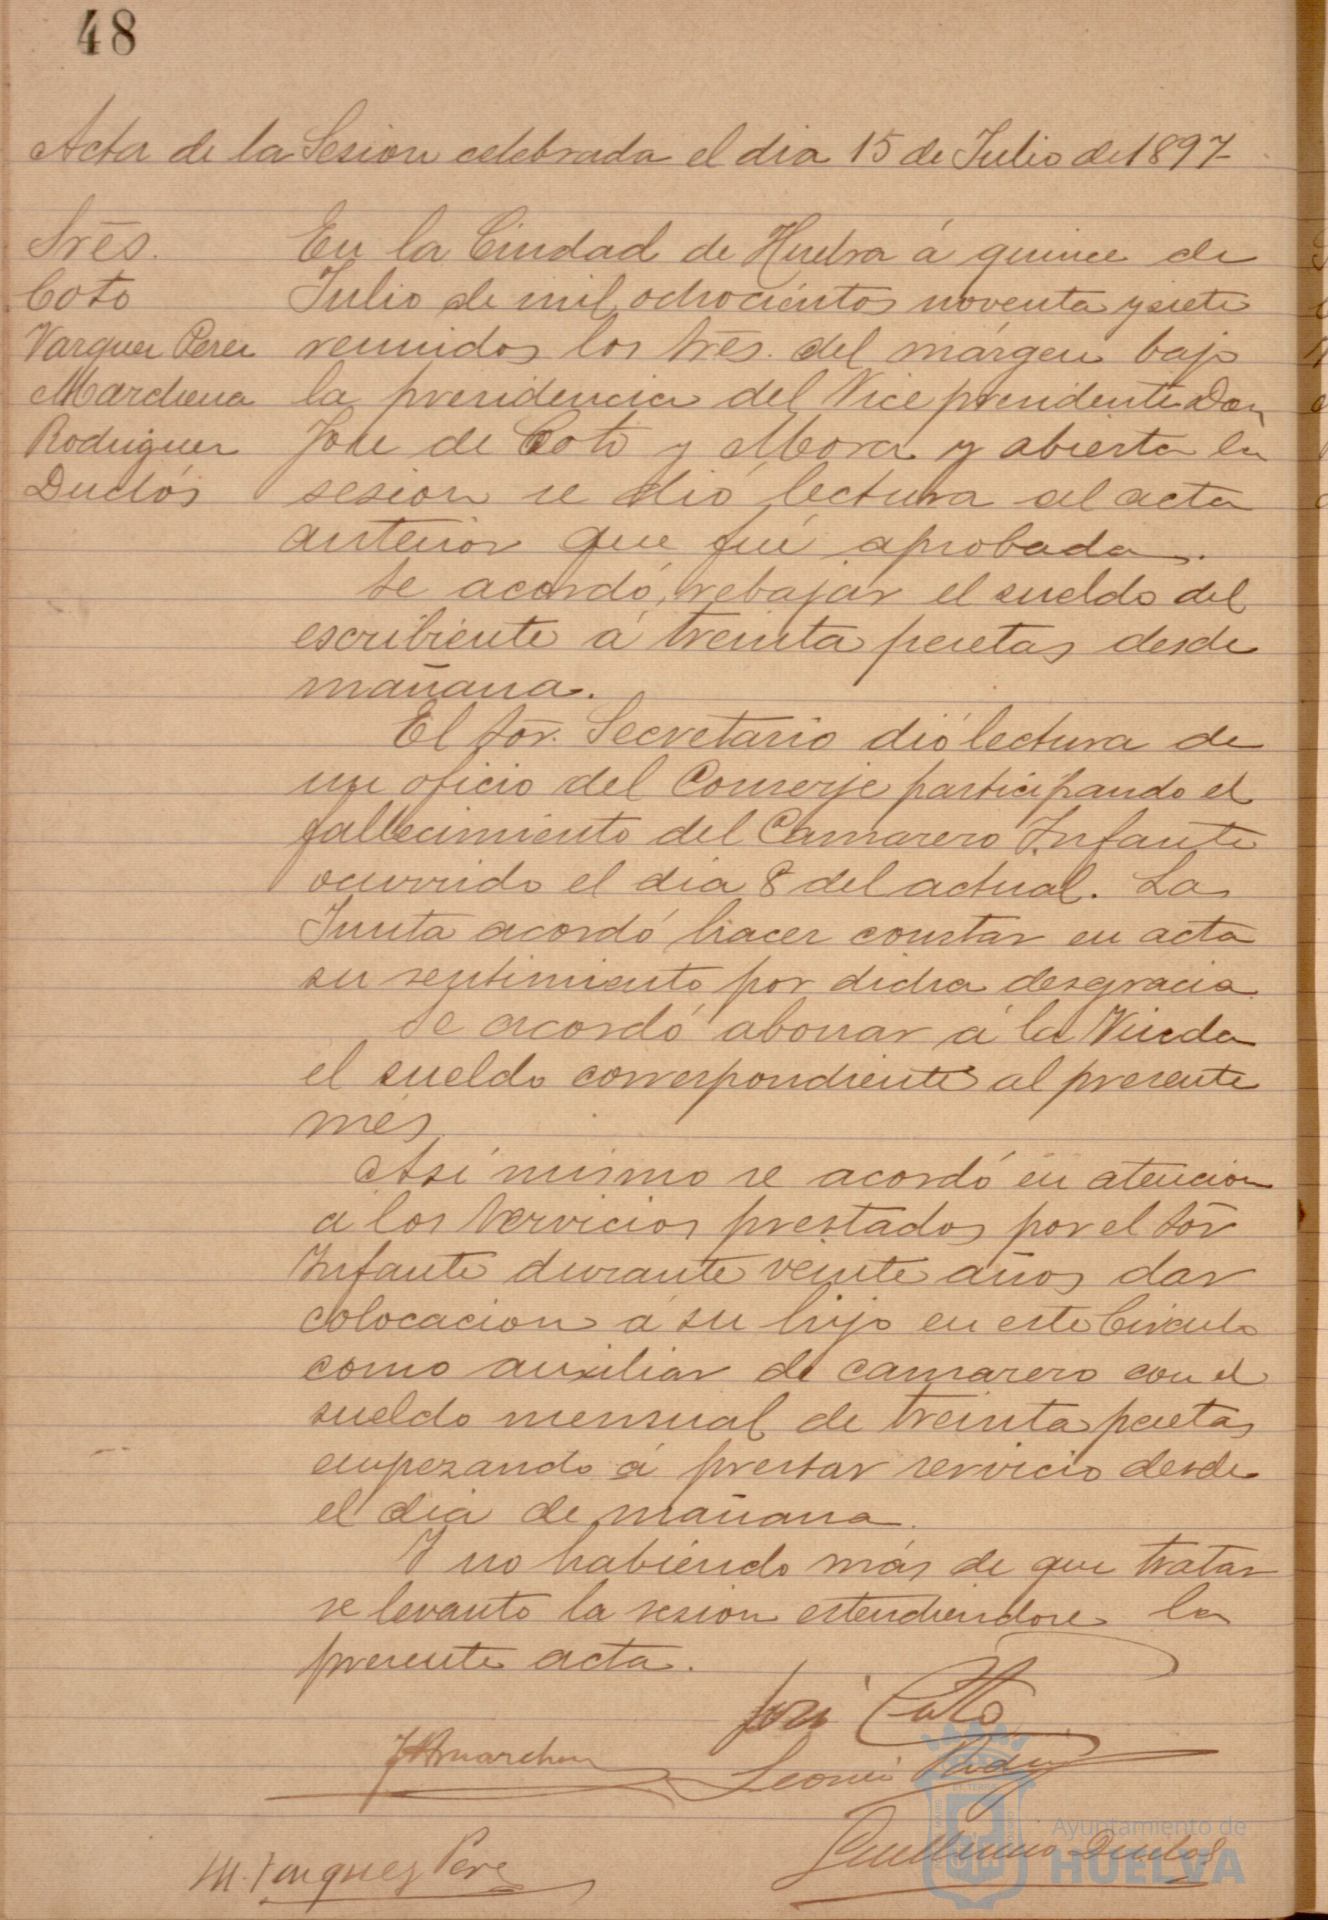 48
Acta de la Sesion celebrada el dia 15 de Julio de 1897
Sres.
Coto
Vazquez Perez
Marchena
Rodriguez
Duclós
En la Ciudad de Huelva á quince de
Julio de mil ochocientos noventa y siete
reunidos los Sres. del márgen bajo
la presidencia del Vice presidente Don
Jose de Coto y Mora y abierta la
sesion se dió lectura al acta
anterior que fué aprobada.
Se acordó, rebajar el sueldo del
escribiente á treinta pesetas desde
mañana.
El Sor. Secretario dió lectura de
un oficio del Conserje participando el
fallecimiento del Camarero Infante
ocurrido el dia 8 del actual. La
Junta acordó hacer constar en acta
su sentimiento por dicha desgracia
Se acordó abonar á la Viuda
el sueldo correspondiente al presente
més
Asi mismo se acordó en atencion
a los servicios prestados por el Sor
Infante durante veinte años dar
colocacion á su hijo en este Circulo
como auxiliar de camarero con el
sueldo mensual de treinta pesetas
empezando á prestar servicio desde
el dia de mañana.
Y no habiendo más de que tratar
se levanto la sesion estendiendose la
presente acta.
José Coto
J. Marchena
M. Vazquez Perez
Guillermo Duclos
Ayuntamiento de
HUELVA